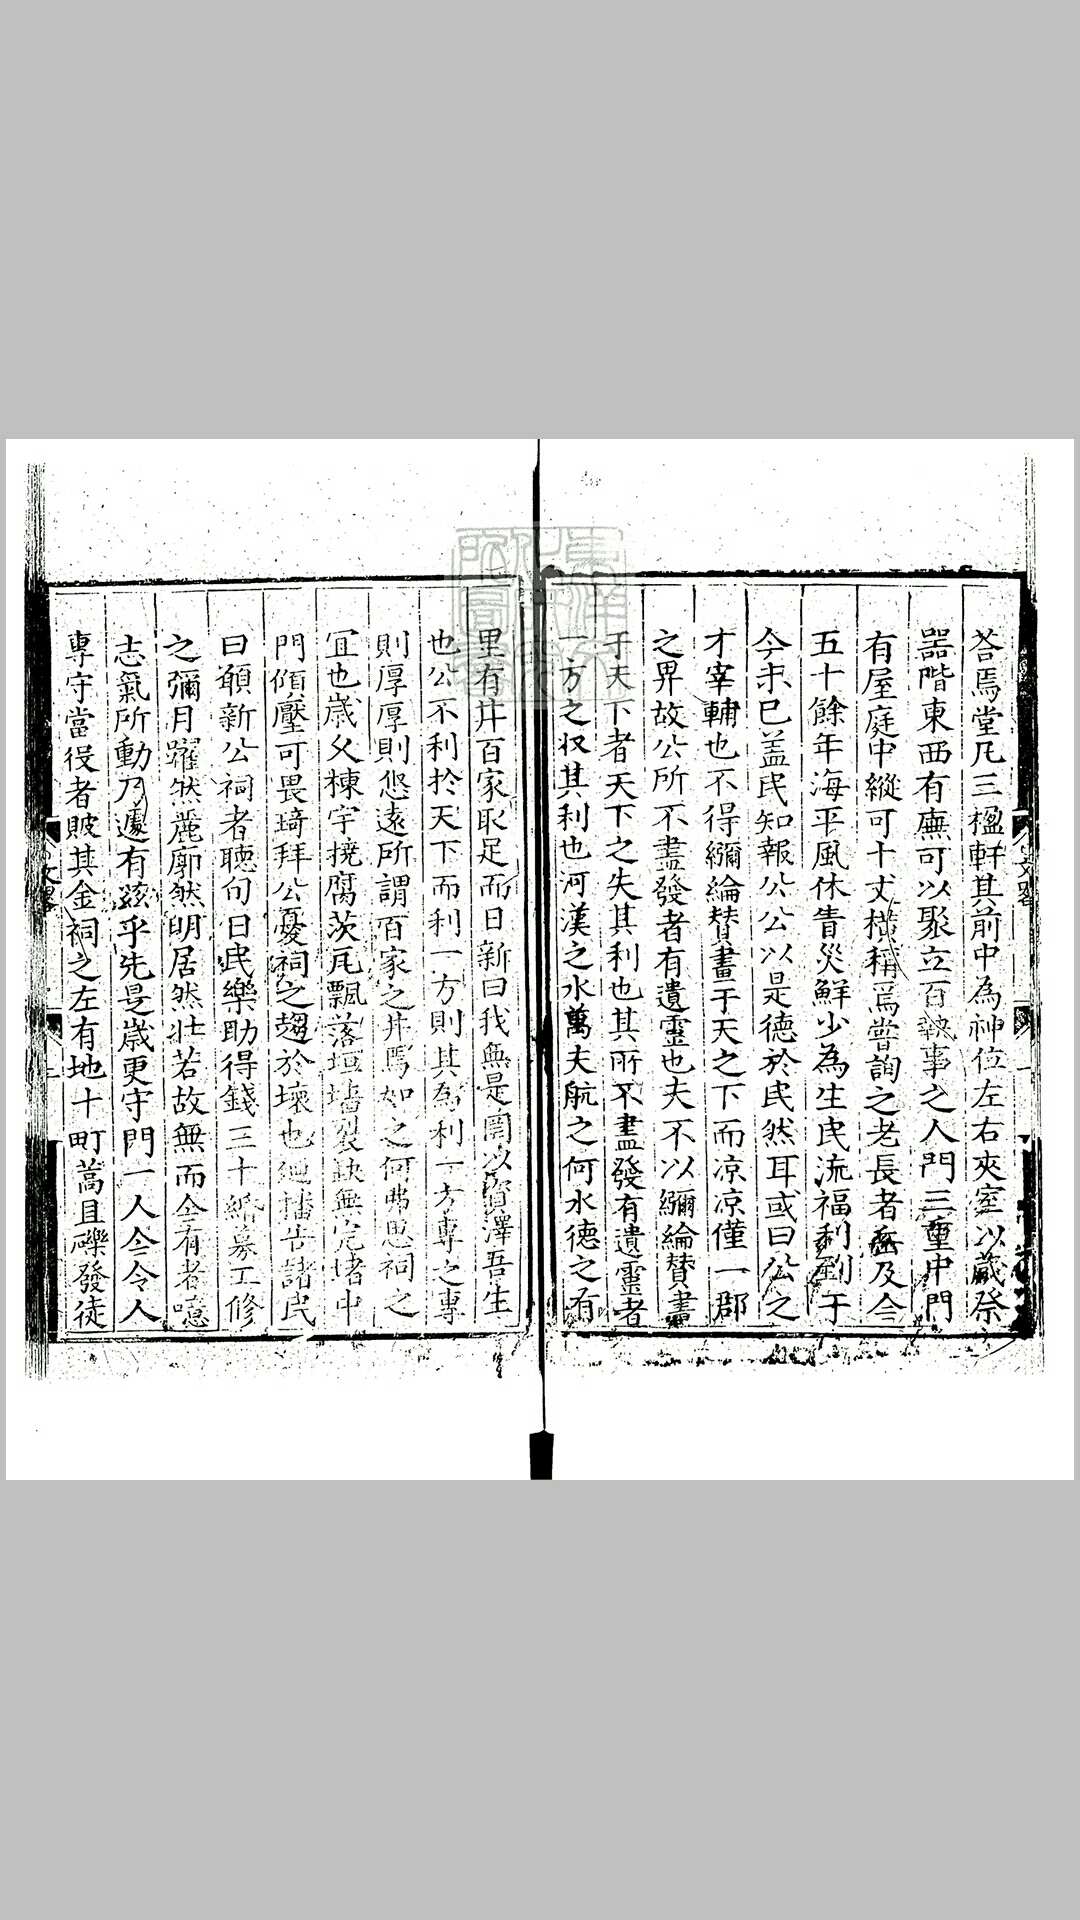 荅焉堂凡三楹軒其前中為神位左右夾室以蔵祭
噐階東西有廡可以聚立百執事之人門三重中門
有屋庭中縱可十丈橫稱焉嘗詢之老長者岳及今
五十餘年海平風休眚災鮮少為生民流福利到于
今未已盖民知報公公以是德於民然耳或曰公之
才宰輔也不得彌綸賛畫于天之下而凉凉僅一郡
之界故公所不盡發者有遺靈也夫不以彌綸賛畫
于天下者天下之失其利也其所不盡發有遺靈者
一方之収其利也河漢之水萬夫航之何水德之有
里有井百家取足而日新曰我無是胡以資澤吾生
也公不利扵天下而利一方則其為利一方專之專
則厚厚則悠遠所謂百家之井焉如之何弗思祠之
冝也歳乆棟宇撓腐茨瓦飄落垣墻裂缺無完堵中
門傾壓可畏琦拜公憂祠之趨於壊也廼播告諸民
曰願新公祠者聽旬日民樂助得錢三十緡募工修
之彌月躍然麗廓然明居然壮若故無而仐有者噫
志氣所動乃遽有玆乎先是歳更守門一人仐令人
專守當役者貱其金祠之左有地十町蒿且礫發徒
文畧
文畧